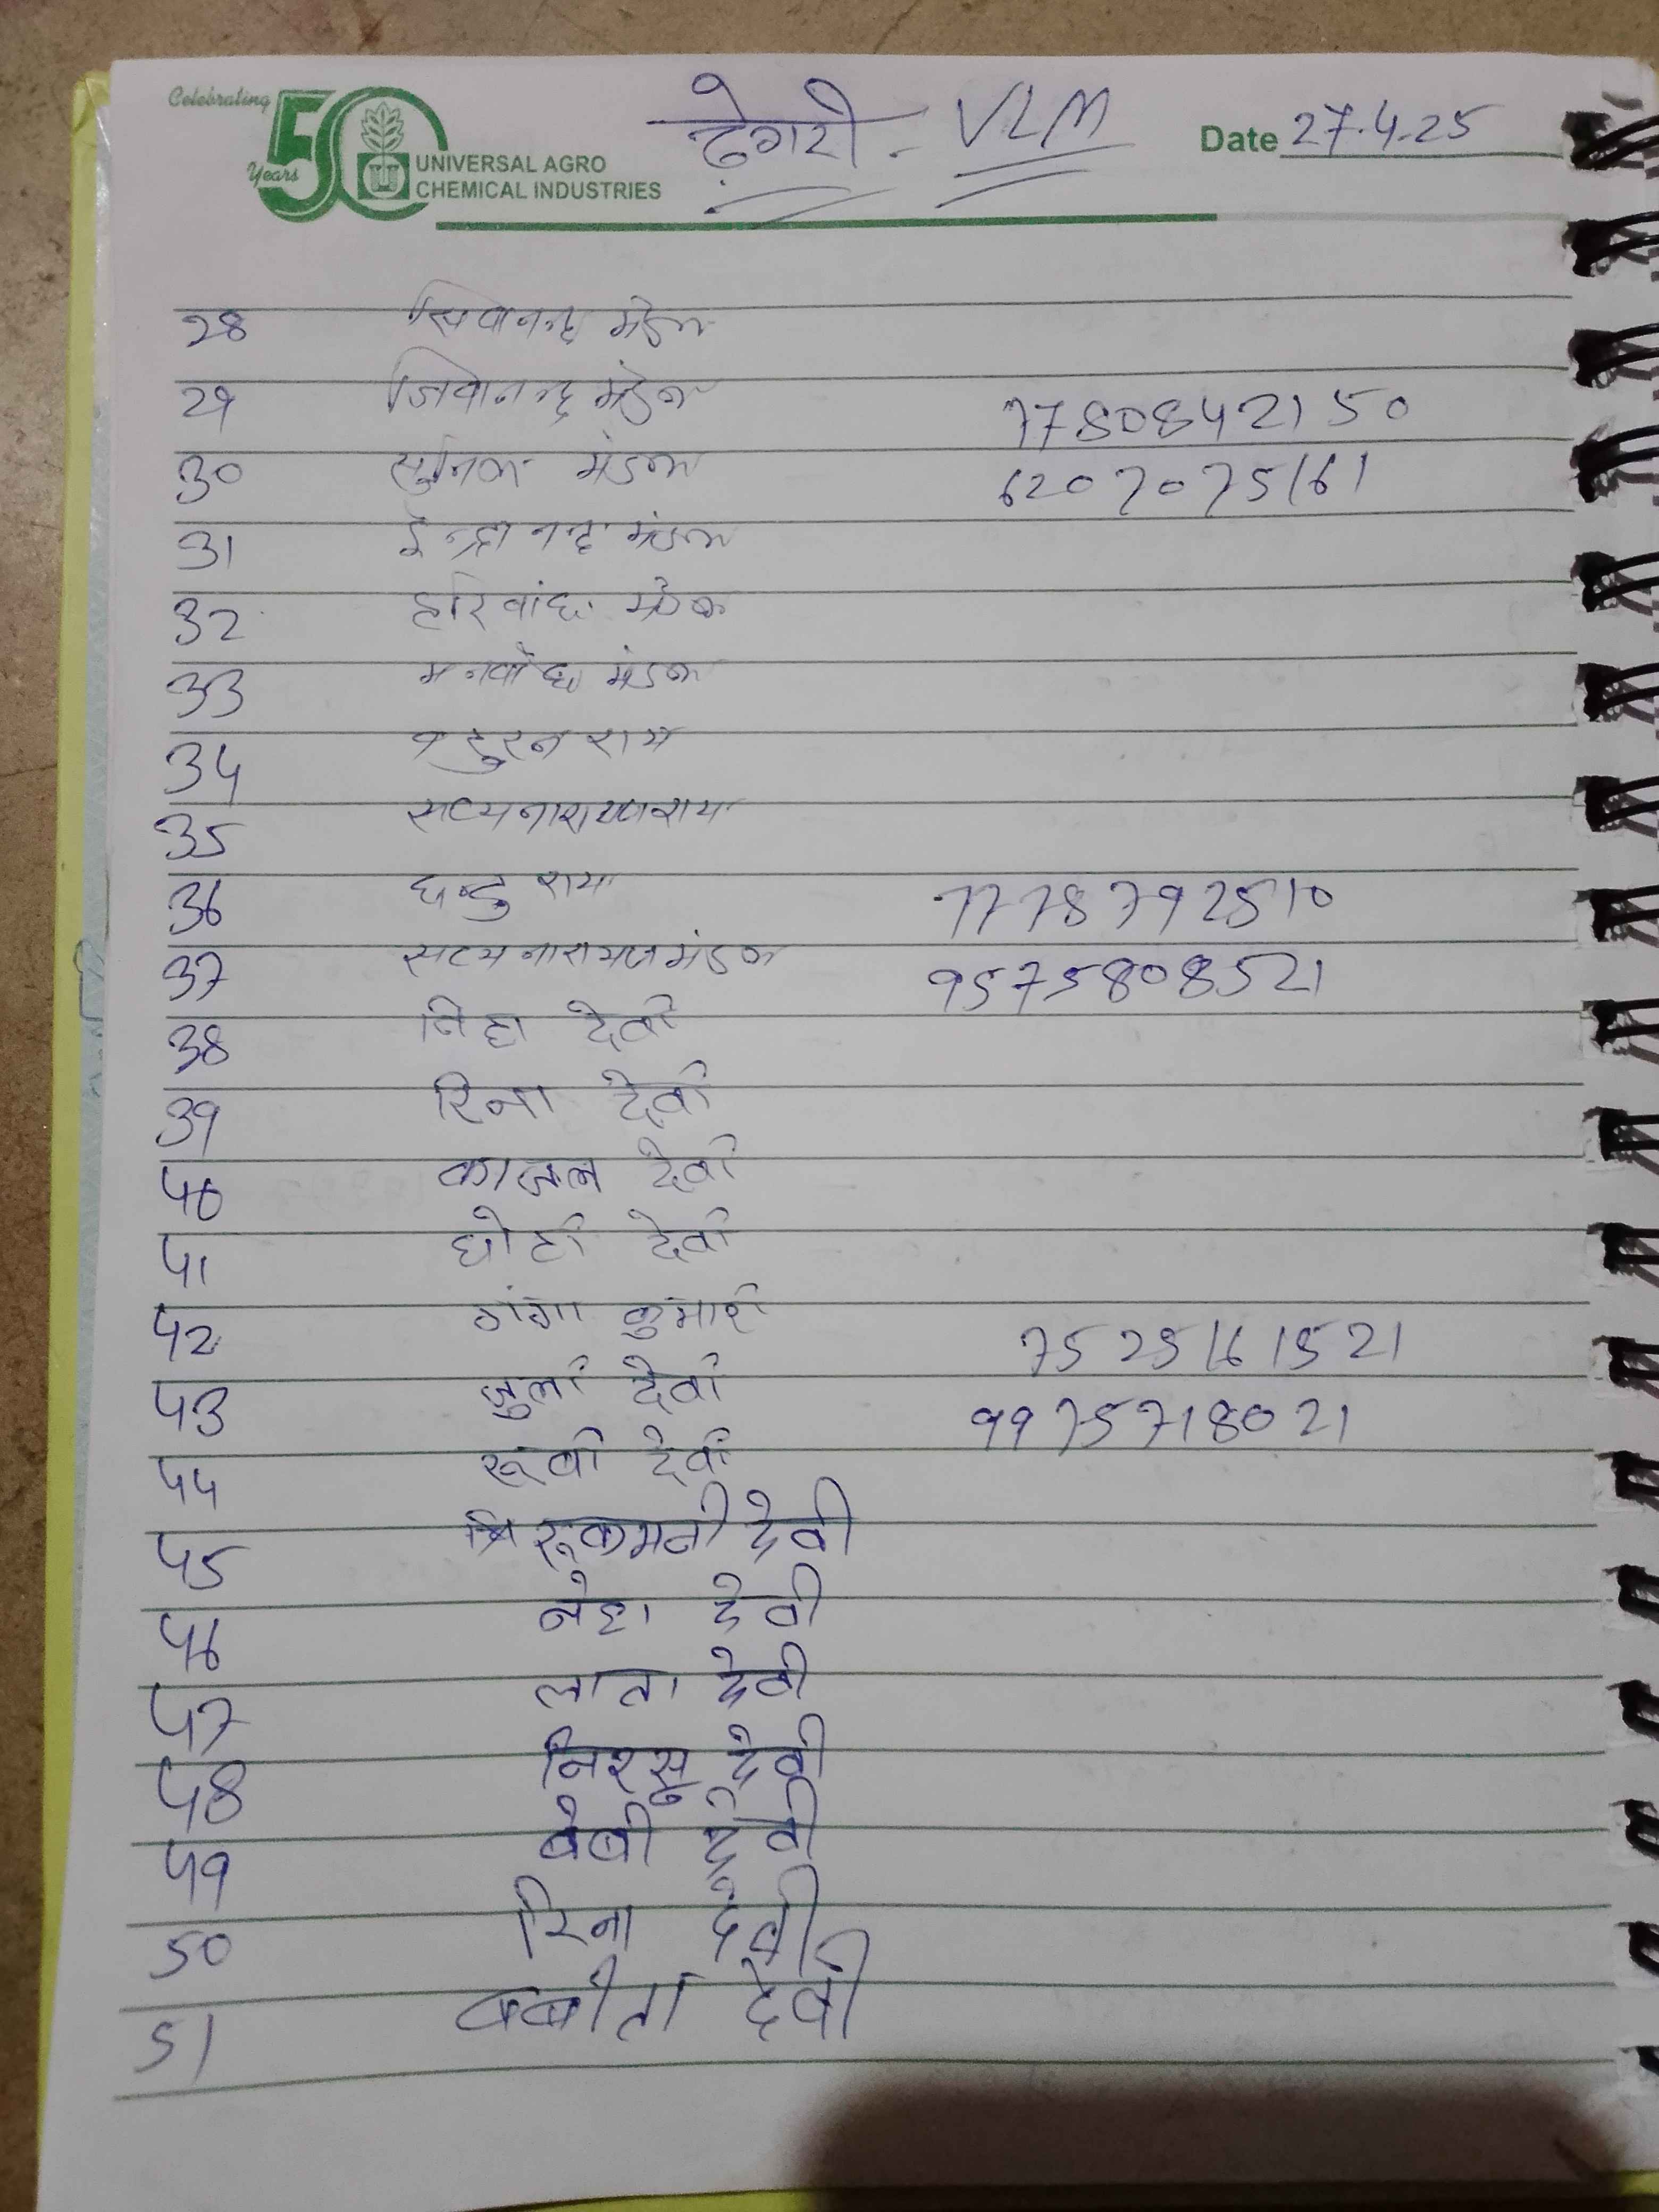 Celebrating
50
Years
UNIVERSAL AGRO
CHEMICAL INDUSTRIES
ढ़ेगरी - VLM
Date 27.4.25
28 सिवानन्द मंडल
29 जिवानन्द मंडल 7780842150
30 सुनिल मंडल 6207075161
31 ईन्द्रानन्द मंडल
32 मंडल
33 मंडल
34 राय
35 सत्यनारायण राय
36 राय 7778792510
37 सत्यनारायण मंडल 9575808521
38 निहा देवी
39 रिना देवी
40 काजल देवी
41 छोटी देवी
42 गंगा कुमारी 7525161521
43 जुली देवी 9975718021
44 रूबी देवी
45 रूकमनी देवी
46 नेहा देवी
47 लाता देवी
48 निरसु देवी
49 बेबी देवी
50 रिना देवी
51 बबीता देवी